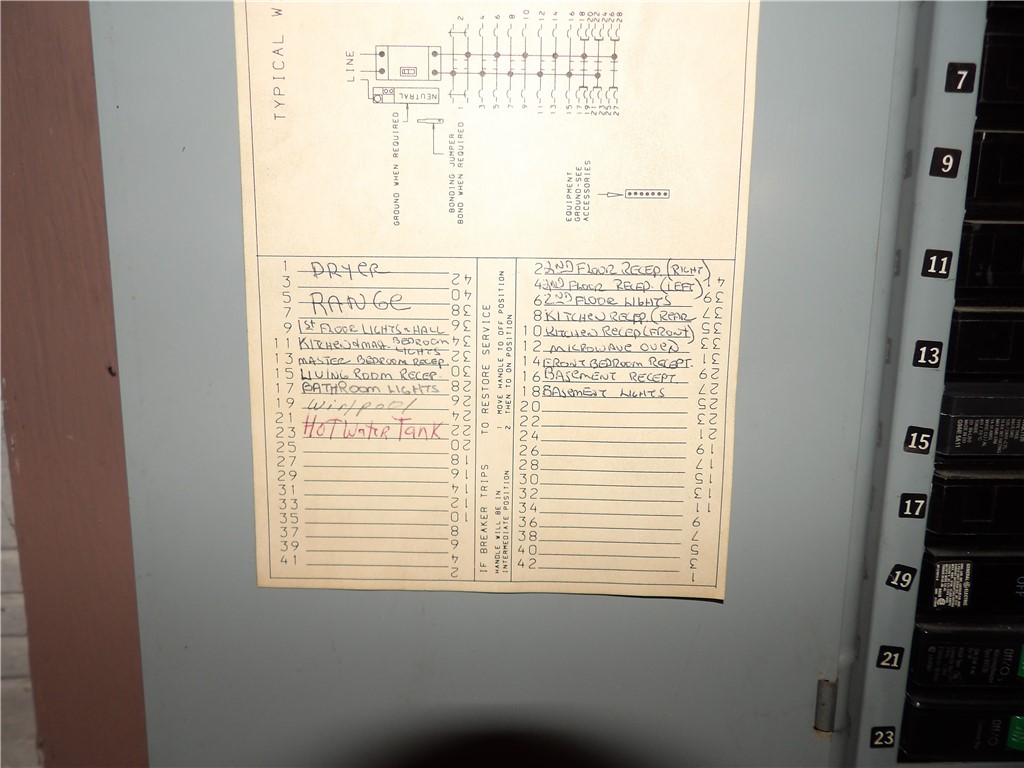 TYPICAL W
LINE
NEUTRAL
GROUND WHEN REQUIRED
BONDING JUMPER
BOND WHEN REQUIRED
EQUIPMENT
GROUND-SEE
ACCESSORIES
2 4 6 8 10 12 14 16 18 20 22 24 26 28
1 3 5 7 9 11 13 15 17 19 21 23 25 27
1 DRYER 42
3 40
5 RANGE 38
7 36
9 1ST FLOOR LIGHTS & HALL 34
11 KITCHEN & MAS. BEDROOM LIGHTS 32
13 MASTER BEDROOM RECEP. 30
15 LIVING ROOM RECEP. 28
17 BATHROOM LIGHTS 26
19 Wirlpool 24
21 HOT WATER TANK 22
23 20
25 18
27 16
29 14
31 12
33 10
35 8
37 6
39 4
41 2
IF BREAKER TRIPS
HANDLE WILL BE IN
INTERMEDIATE POSITION
TO RESTORE SERVICE
1 MOVE HANDLE TO OFF POSITION
2 THEN TO ON POSITION
2 2ND FLOOR RECEP. (RIGHT) 41
4 2ND FLOOR RECEP. (LEFT) 39
6 2ND FLOOR LIGHTS 37
8 KITCHEN RECEP. (REAR 35
10 KITCHEN RECEP (FRONT) 33
12 MICROWAVE OVEN 31
14 FRONT BEDROOM RECEPT. 29
16 BASEMENT RECEPT. 27
18 BASEMENT LIGHTS 25
20 23
22 21
24 19
26 17
28 15
30 13
32 11
34 9
36 7
38 5
40 3
42 1
7
9
11
13
15
17
19
GENERAL ELECTRIC
OFF
21
OFF/O
23
OFF/O